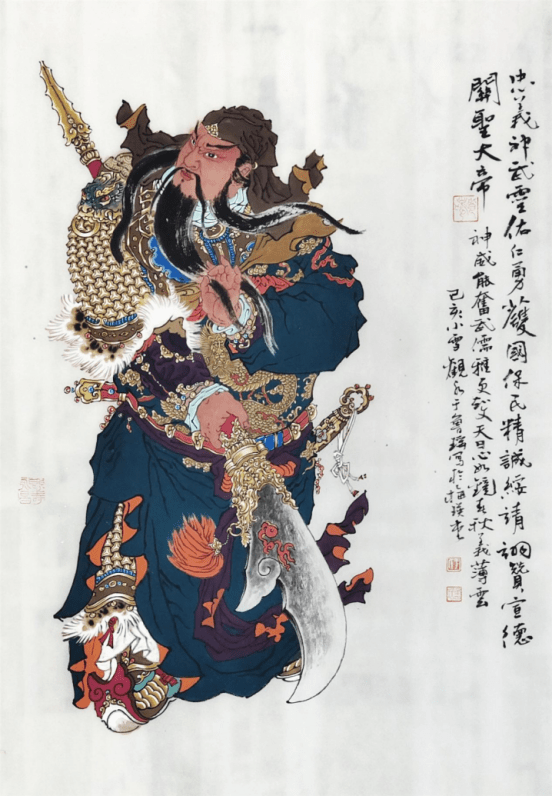 忠義神武靈佑仁勇護國保民精誠綏靖翊贊宣德
關聖大帝
神威能奮武儒雅更知文天日心如鏡春秋義薄雲
己亥小雪觀水于魯瑞寫於